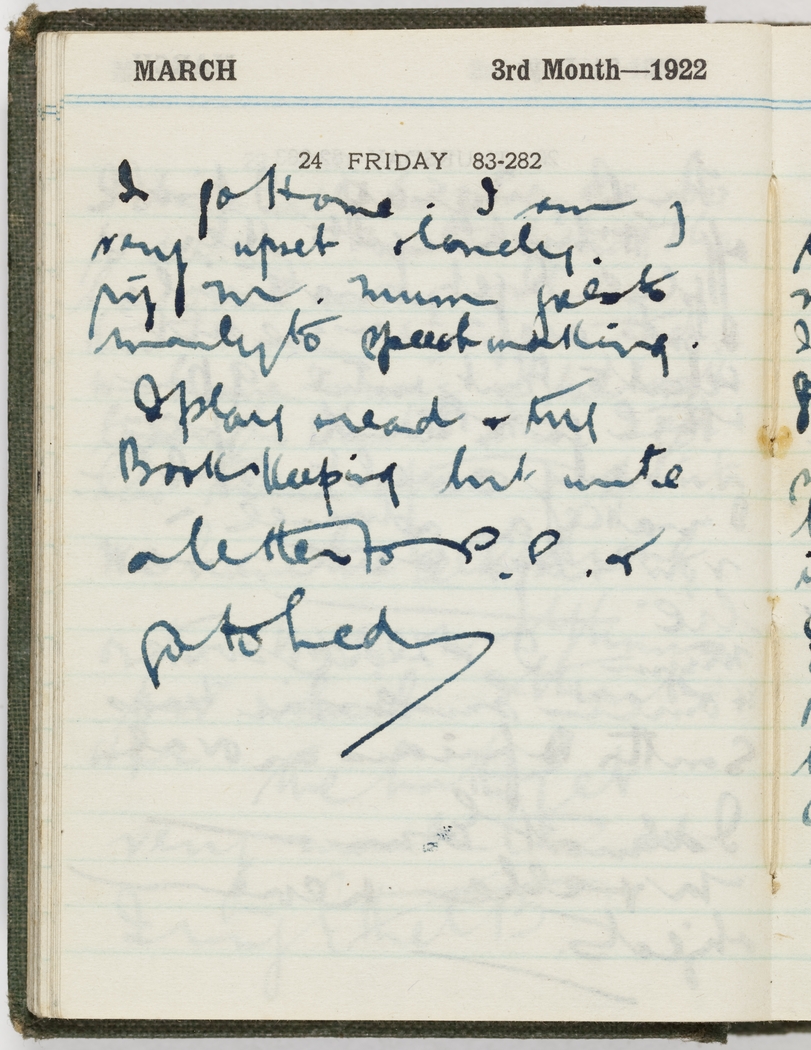 MARCH 3rd Month—1922
24 FRIDAY 83-282
I go Home. I am
very upset & lonely.
mum goes to
speech making.
I play read & try
Book Keeping but write
a letter to P.P. &
go to bed